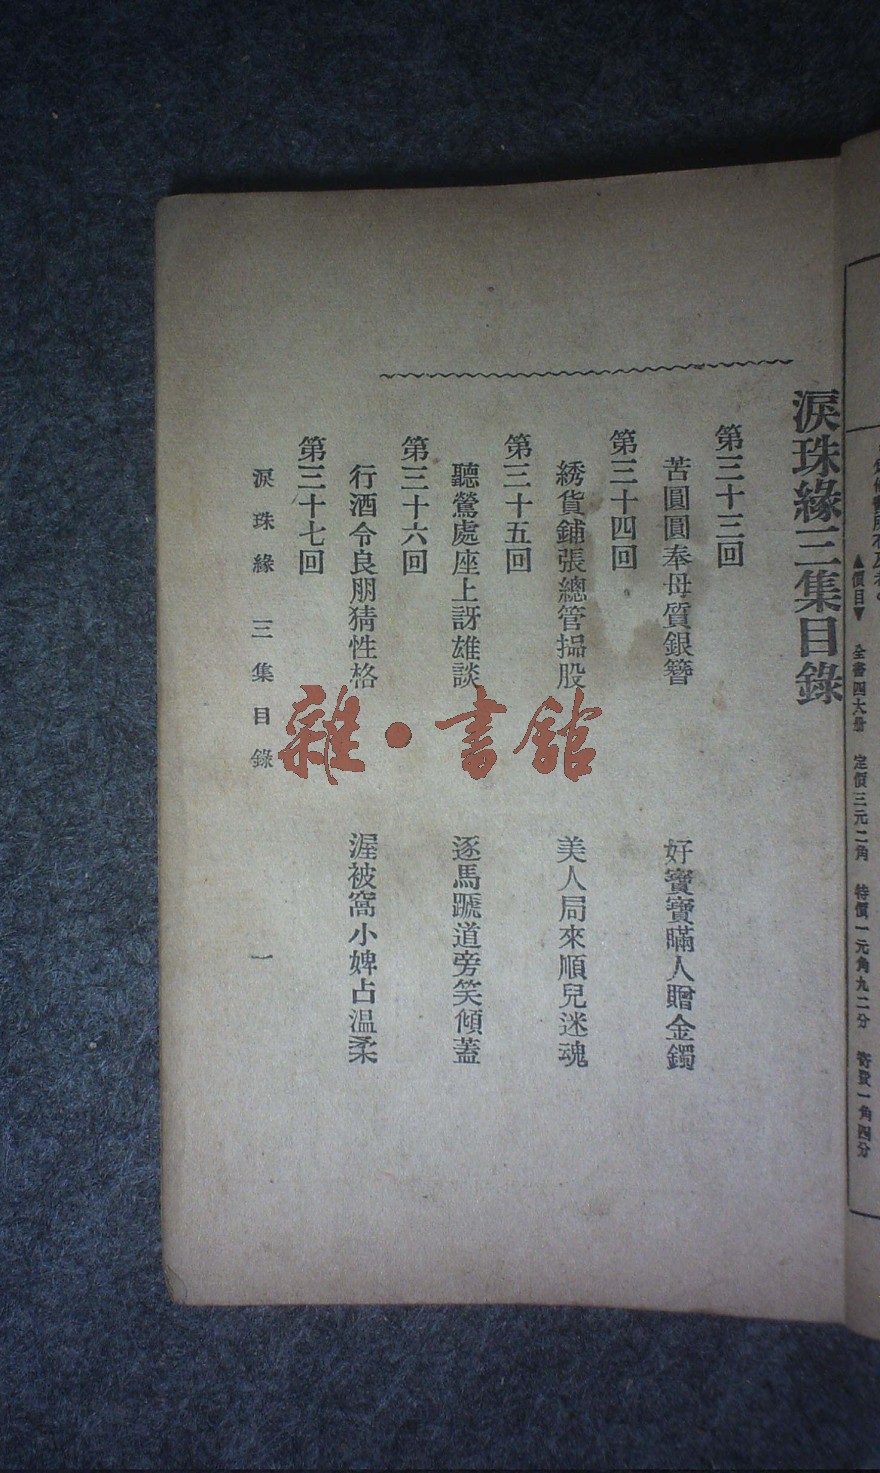 ▲價目▼　全書四大册　定價三元二角　特價一元角九二分　寄費一角四分
淚珠緣三集目錄
第三十三回
苦圓圓奉母質銀簪　好寶寶瞞人贈金鐲
第三十四回
綉貨鋪張總管揾股　美人局來順兒迷魂
第三十五回
聽鶯處座上訝雄談　逐馬蹏道旁笑傾蓋
第三十六回
行酒令良朋猜性格　渥被窩小婢占溫柔
第三十七回
淚珠緣　三集目錄　一
雜·書館